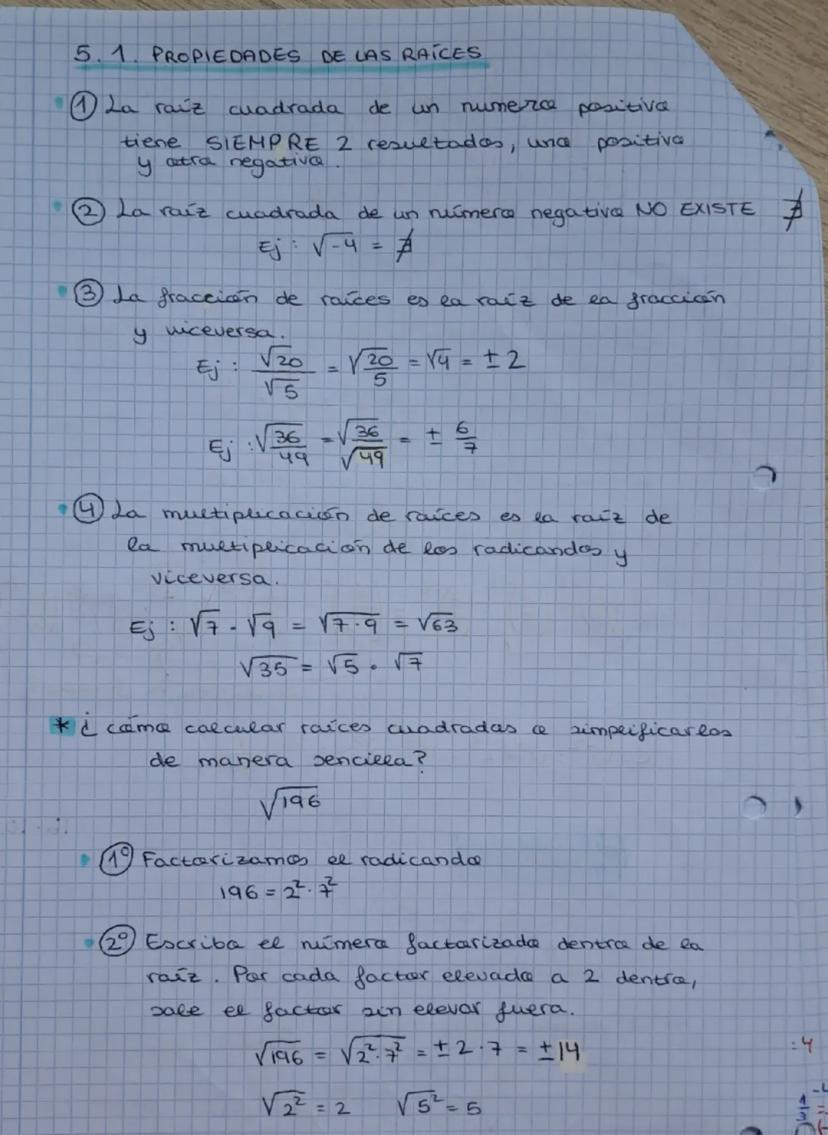 5.1. PROPIEDADES DE LAS RAÍCES
① La raíz cuadrada de un numero positivo
tiene SIEMPRE 2 resultados, uno positivo
y otro negativo.
② La raíz cuadrada de un número negativo NO EXISTE ∄
Ej: √-4 = ∄
③ La fracción de raíces es la raíz de la fracción
y viceversa.
Ej: √20/√5 = √(20/5) = √4 = ± 2
Ej: √(36/49) = √36/√49 = ± 6/7
④ La multiplicación de raíces es la raíz de
la multiplicación de los radicandos y
viceversa.
Ej: √7 · √9 = √(7·9) = √63
√35 = √5 · √7
* ¿cómo calcular raíces cuadradas o simplificarlos
de manera sencilla?
√196
1º Factorizamos el radicando
196 = 2²·7²
2º Escribo el número factorizado dentro de la
raíz. Por cada factor elevado a 2 dentro,
sale el factor sin elevar fuera.
√196 = √(2²·7²) = ± 2·7 = ±14
:4
√2² = 2 √5² = 5